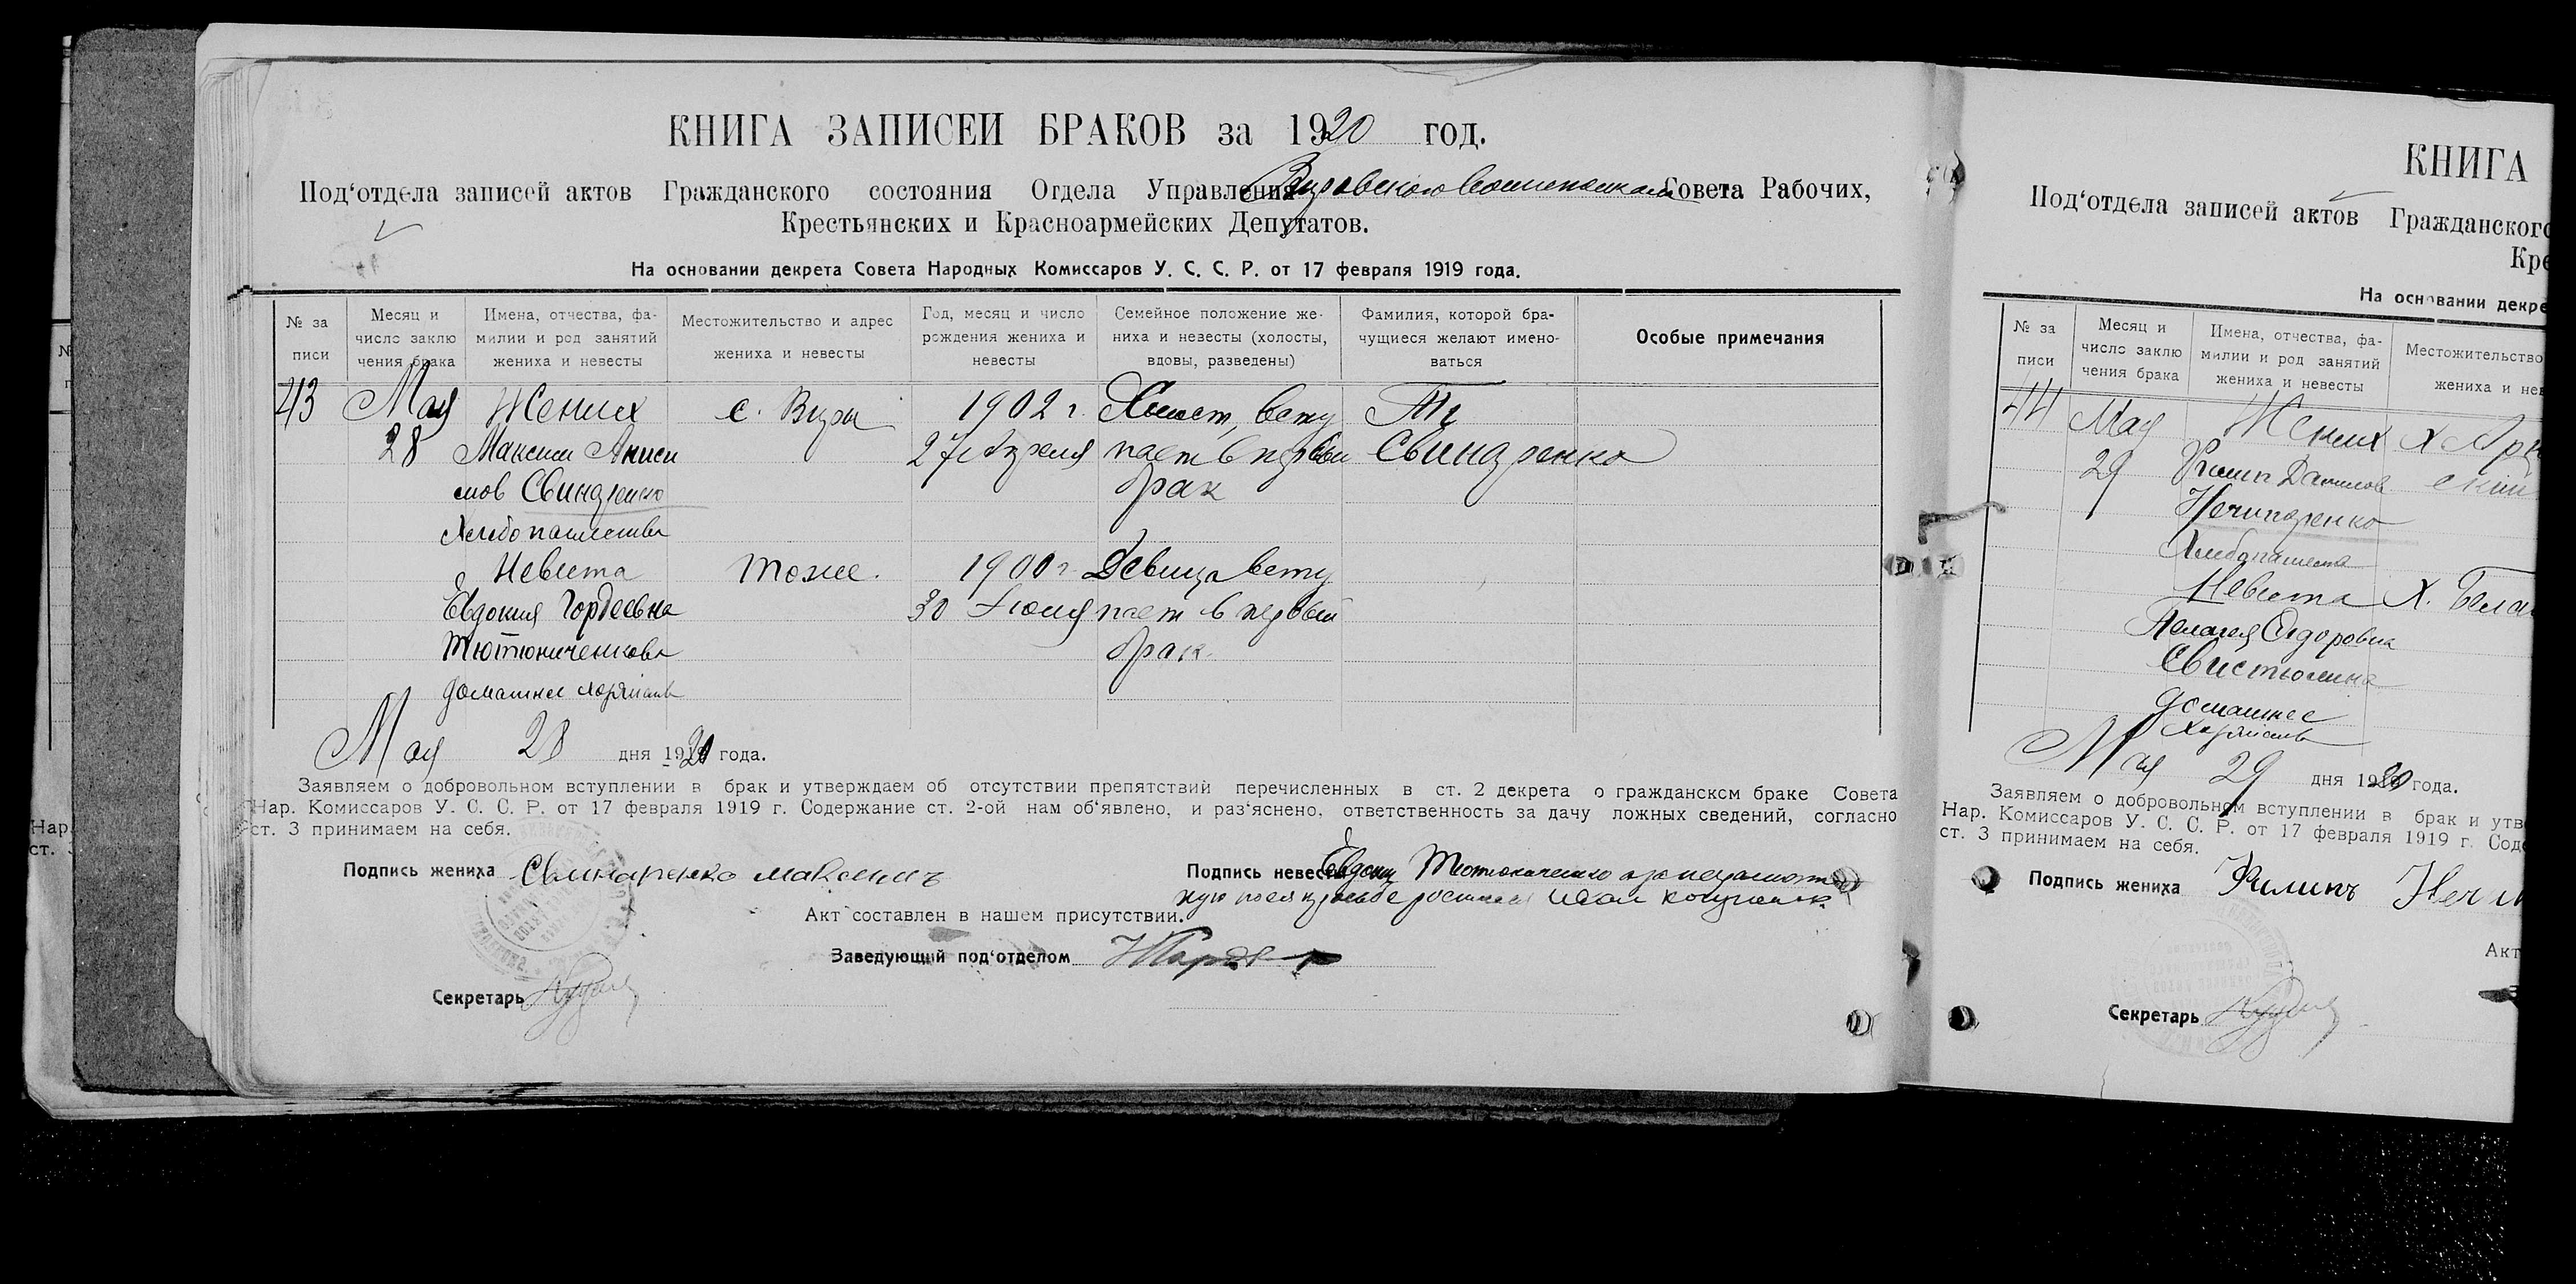 КНИГА ЗАПИСЕЙ БРАКОВ за 1920 год.
Под‘отдела записей актов Гражданского состояния Отдела Управления Вировского Совета Рабочих,
Крестьянских и Красноармейских Депутатов.
На основании декрета Совета Народных Комиссаров У. С. С. Р. от 17 февраля 1919 года.
№ за писи
Месяц и число заклю чения брака
Имена, отчества, фа- милии и род занятий жениха и невесты
Местожительство и адрес жениха и невесты
Год, месяц и число рождения жениха и невесты
Семейное положение же- ниха и невесты (холосты, вдовы, разведены)
Фамилия, которой бра- чущиеся желают имено- ваться
Особые примечания
43 Мая Жених с. Виры 1902 г. Холост, всту
28 Максим Аниси 27 Апреля пает в первый Свинаренко
мов Свинаренко брак
Хлебопашество
Невеста тоже. 1900 г. Девица всту
Евдокия Гордеевна 30 Июля пает в первый
Тютюниченкова брак.
домашнее хозяйство
Мая 28 дня 1920 года.
Заявляем о добровольном вступлении в брак и утверждаем об отсутствии препятствий перечисленных в ст. 2 декрета о гражданском браке Совета
Нар. Комиссаров У. С. С. Р. от 17 февраля 1919 г. Содержание ст. 2-ой нам об‘явлено, и раз‘яснено, ответственность за дачу ложных сведений, согласно
ст. 3 принимаем на себя.
Подпись жениха Свинаренко Максимъ
Подпись невесты Евдокию Тютюниченко
Акт составлен в нашем присутствии.
Заведующий под‘отделом
Секретарь
КНИГА
Под‘отдела записей актов Гражданского
Кре
На основании декре
№ за писи
Месяц и число заклю чения брака
Имена, отчества, фа- милии и род занятий жениха и невесты
Местожительство жениха и нев
44 Мая Жених
29 Филип Данилов
Нечипаренко
Хлебопашество
Невеста Х. Бела
Пелагея Сидоровна
Свистюлина
домашнее
хозяйство
Мая 29 дня 1920 года.
Заявляем о добровольном вступлении в брак и утв
Нар. Комиссаров У. С. С. Р. от 17 февраля 1919 г. Соде
ст. 3 принимаем на себя.
Подпись жениха Филипъ
Акт
Секретарь
Нар.
ст.